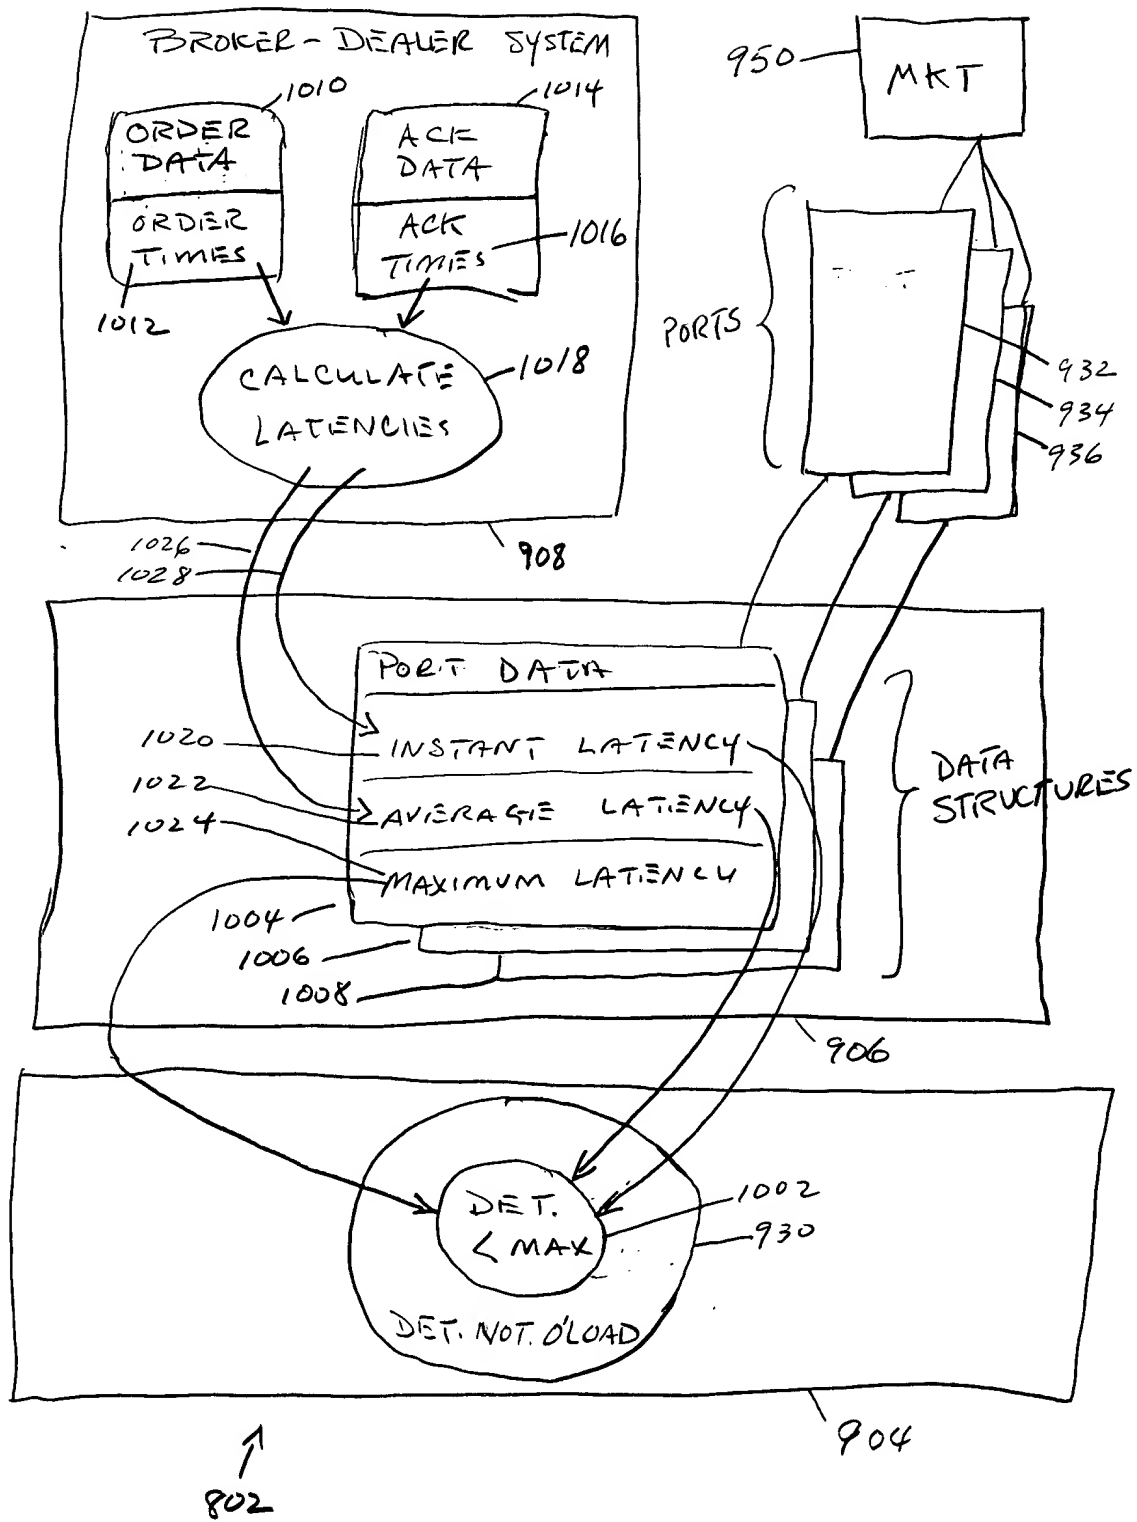 BROKER-DEALER SYSTEM
1010
1014
ORDER
DATA
ORDER
TIMES
1012
ACK
DATA
ACK
TIMES
1016
CALCULATE
LATENCIES
1018
908
950
MKT
PORTS
932
934
936
1026
1028
PORT DATA
INSTANT LATENCY
AVERAGE LATENCY
MAXIMUM LATENCY
1020
1022
1024
1004
1006
1008
DATA
STRUCTURES
906
DET.
< MAX
1002
930
DET. NOT. O'LOAD
904
802